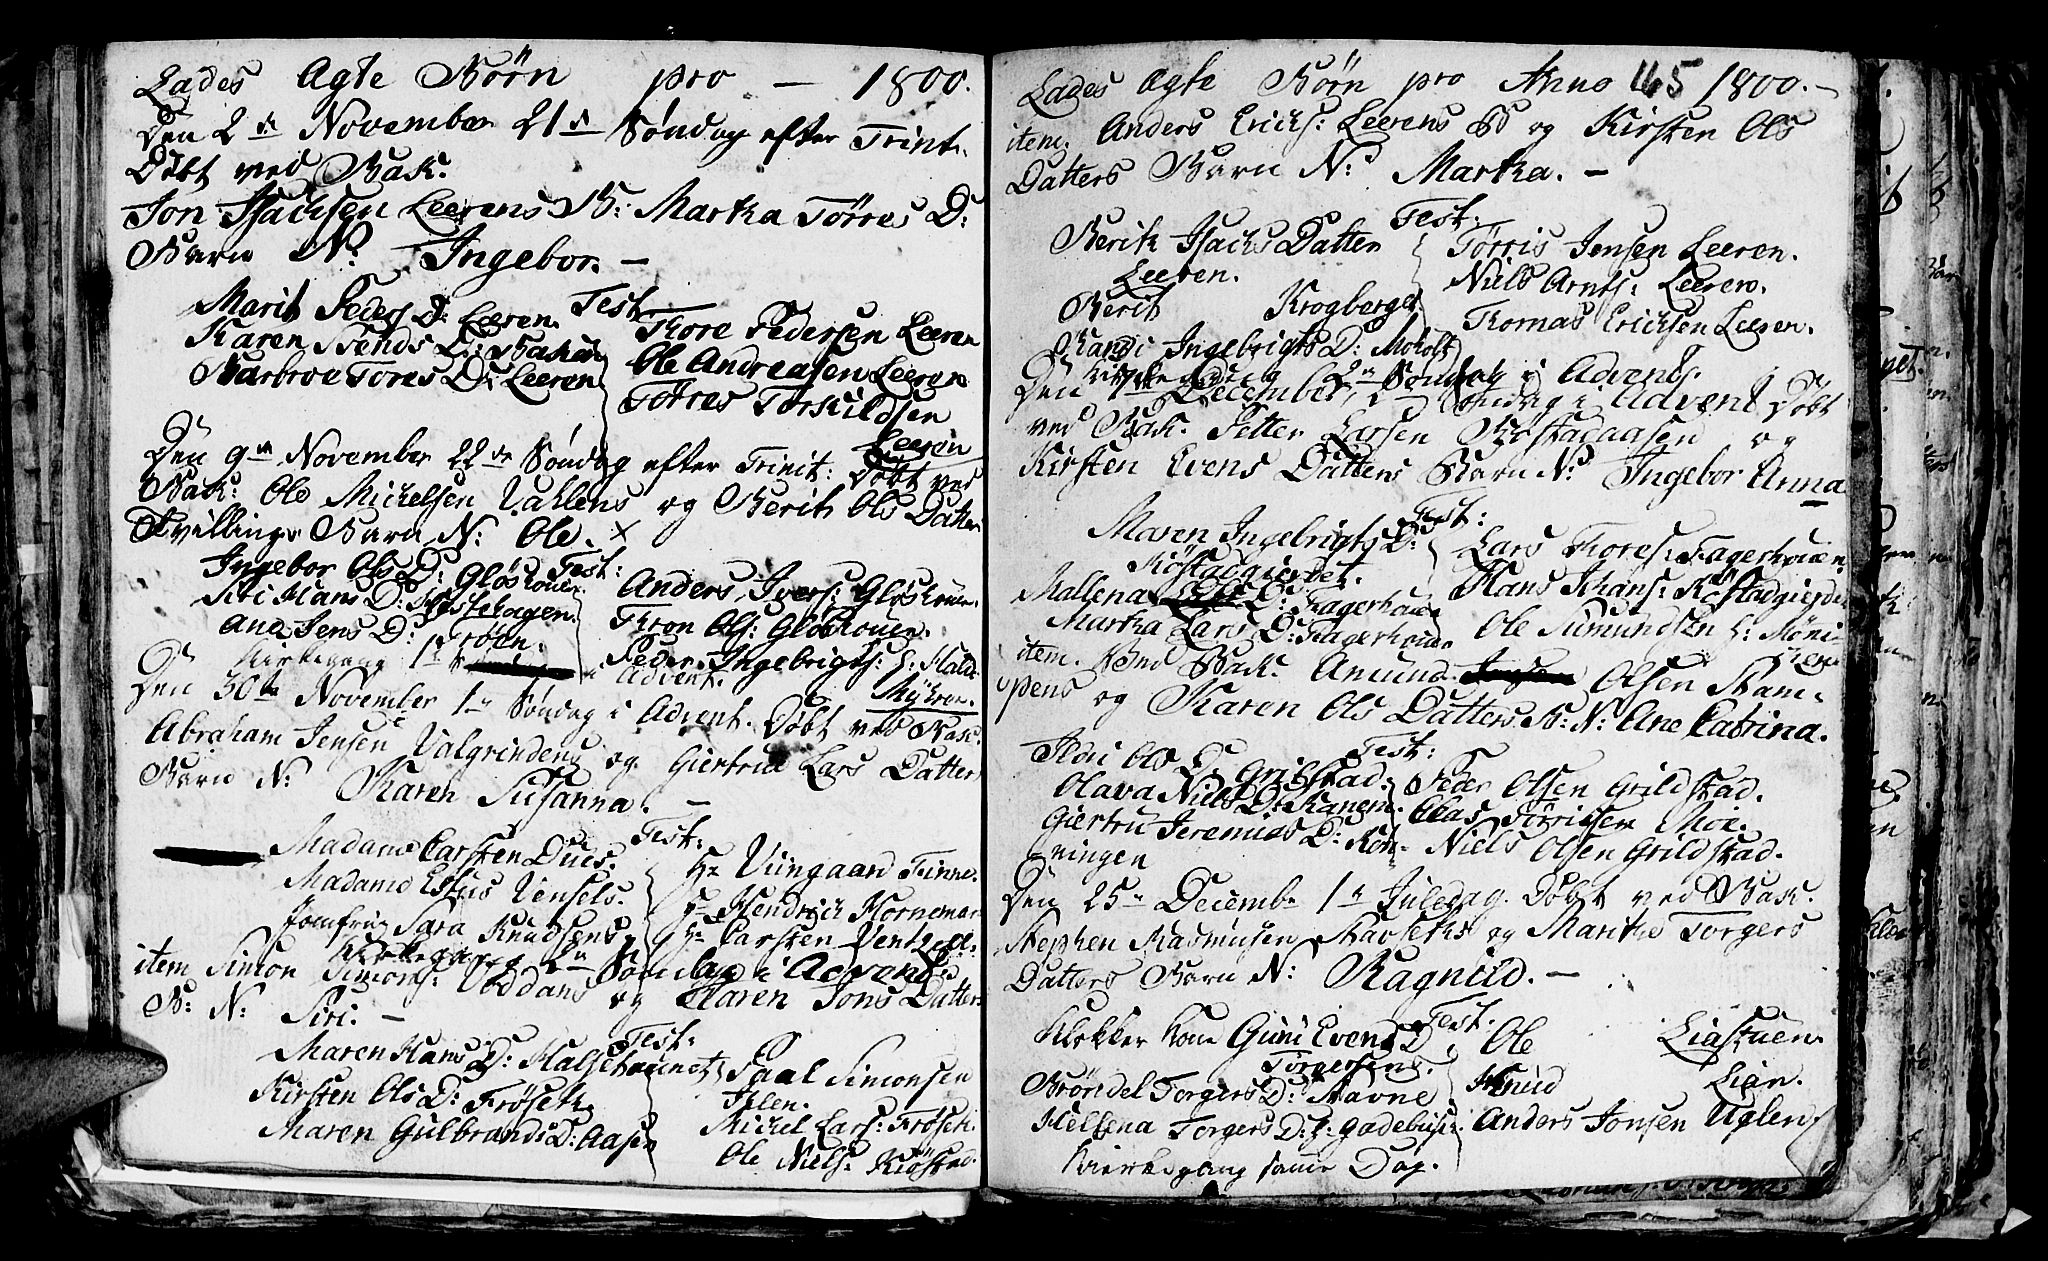 Lades Ægte Børn pro — 1800.
Den 2de November 21de Søndag efter Trint.
Døbt ved Bak:
Jon Isachsen Leerens B: Martha Tørres D:
Barn N: Ingebor. —
Test:
Marit Peders D: Leeren.
Karen Svends D: Bakken
Barbroe Tores D: Leeren
Thore Pedersen Leeren
Ole Andreasen Leeren
Tørres Torkildsen
Leeren
Den 9de November 22de Søndag efter Trinit: Døbt ved
Bak: Ole Michelsen Vahlens og Berith Ols Datter
Tvillings Barn N: Ole. ×
Test:
Ingebor Ols D: Gløshouen
Siri Hans D: Festehagen.
Ane Jens D: Trøen.
Anders Ivers: Gløshouen.
Thron Ols: Gløshouen.
Peder Ingebrigts: E: Hald
Myhren.
Kirkegang 1ste Advent.
Den 30te November 1ste Søndag i Advent. Døbt ved Bak:
Abraham Jensen Valgrindens og Giertrue Lars Datter
Barn N: Karen Susanna. —
Test:
Madame Carsten Dues.
Madame Eskus Vensels.
Jomfru Sara Knudsens
Hr Viingaard Finne.
Hr Hendrich Horneman
Hr Carsten Ventzel.
Kirkegang 2den Søndag i Advent.
item Simon Simons: Voddans og Karen Jons Datters
B: N: Siri. —
Test:
Maren Hans D: Halsethaunet
Kirsten Ols D: Frøseth
Maren Gulbrands D: Aasen
Paal Simonsen
Ihlen.
Michel Lars: Frøseth.
Ole Niels: Kiøstad.
Lades Ægte Børn pro Anno 1800. —
165
item. Anders Erichs: Leerens B og Kirsten Ols
Datters Barn N: Martha. —
Test:
Berith Isachs Datter
Leeren.
Berit Krogberget
Randi Ingebrigts D: Moholt
Tørris Jensen Leeren.
Niels Arnts: Leeren.
Thomas Ericksen Leeren.
Kirkegang 2den Søndag i Advent.
Den 7de December, 2den Søndag i Advent Døbt
ved Bak. Petter Larsen Røstadaasen og
Kirsten Evens Datters Barn N: Ingebor Anna
Test:
Maren Ingebrigts D:
Røstadgierdet.
Mallena D: Fagerhouen
Martha Lars D: Fagerhouen
Lars Thores: Fagerhouen
Hans Johans: Røstadgierdet
Ole Sumundsen
item. Bak. Amund Olsen Stam-
pens og Karen Ols Datters B: N: Ane Catrina.
Test:
Ildri Ols D: Grilstad.
Olava Niels D: Ranem.
Giertru Jeremias D: Røn-
ningen
Peder Olsen Grildstad.
Claas Tørrisen Moe.
Niels Olsen Grildstad.
Den 25de Decembe 1ste Juledag. Døbt ved Bak.
Stephen Rasmusen Stavseths og Marithe Torgers
Datters Barn N: Ragnild. —
Test:
Klokker Kone Guni Evens D
Torgersens.
Brøndel Torgers D: Stavne
Hellena Torgers D: i gadehuset
Ole Liastuen
Knud Lian.
Anders Jonsen Uglen
Kierkegang samme Dag.